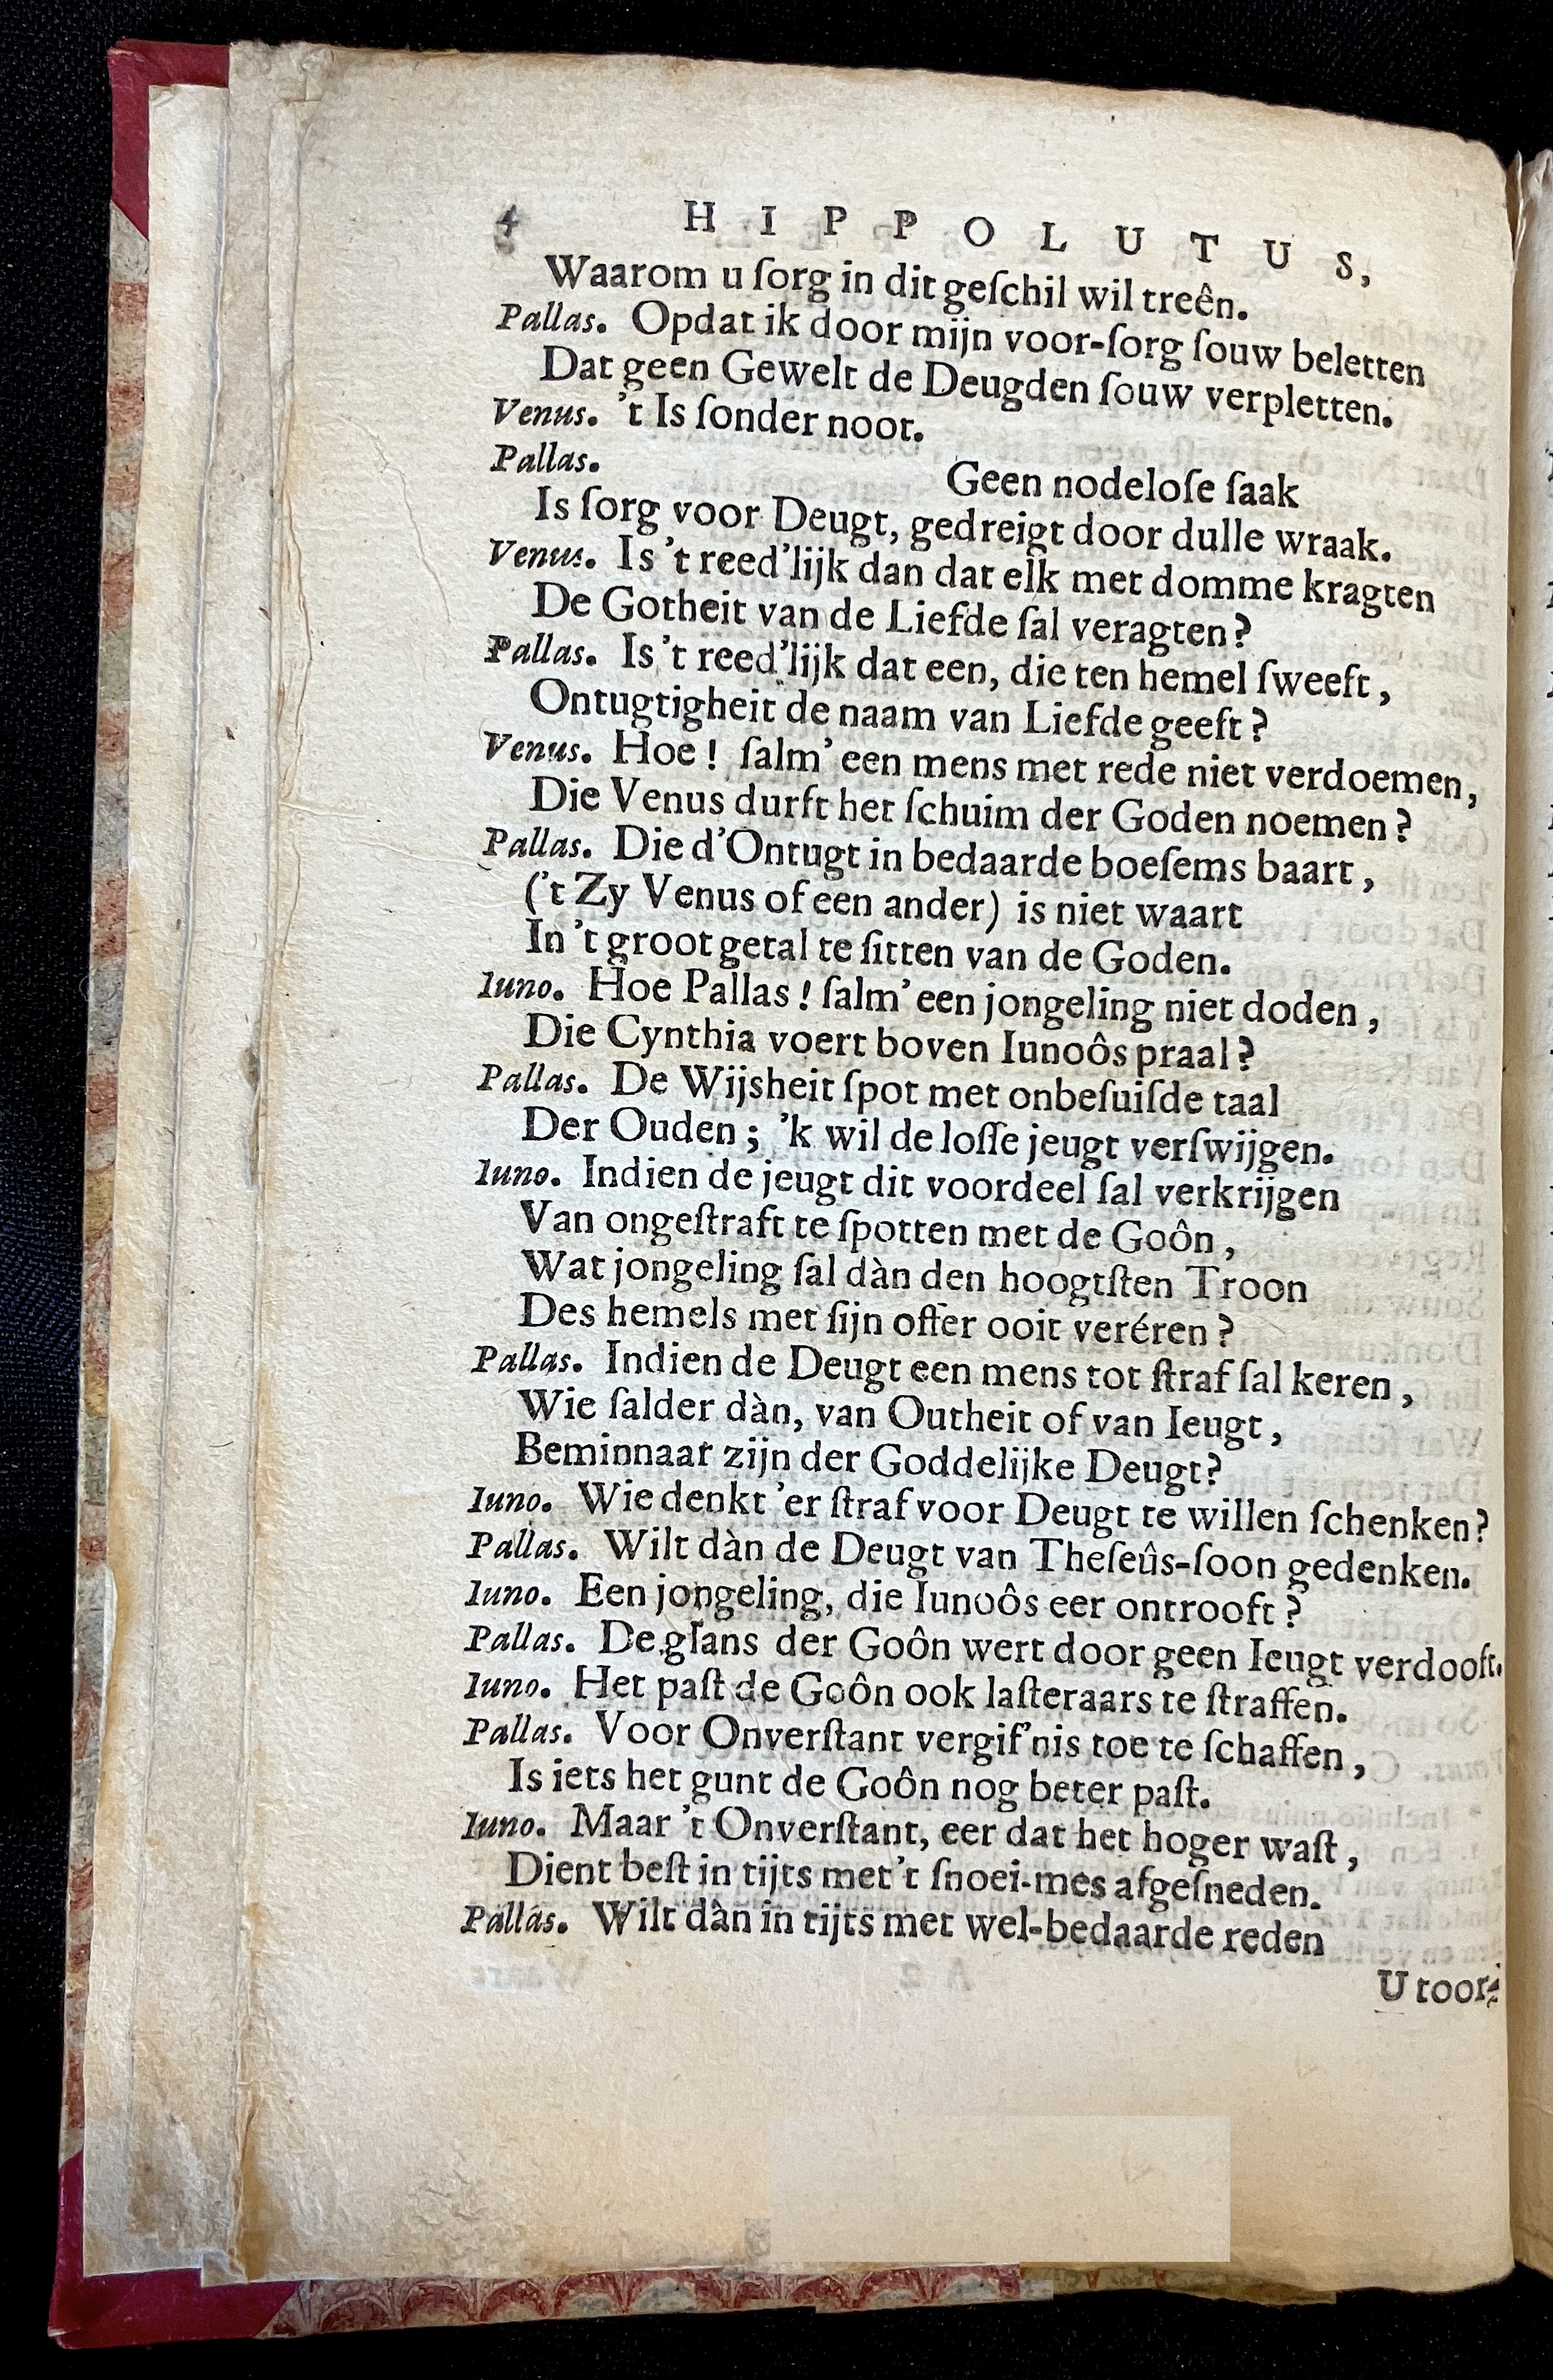 4 HIPPOLUTUS,
Waarom u ſorg in dit geſchil wil treên.
Pallas. Opdat ik door mijn voor-ſorg ſouw beletten
Dat geen Gewelt de Deugden ſouw verpletten.
Venus. 't Is ſonder noot.
Pallas. Geen nodeloſe ſaak
Is ſorg voor Deugt, gedreigt door dulle wraak.
Venus. Is 't reed'lijk dan dat elk met domme kragten
De Gotheit van de Liefde ſal veragten?
Pallas. Is 't reed'lijk dat een, die ten hemel ſweeft,
Ontugtigheit de naam van Liefde geeft?
Venus. Hoe! ſalm' een mens met rede niet verdoemen,
Die Venus durft het ſchuim der Goden noemen?
Pallas. Die d'Ontugt in bedaarde boeſems baart,
('t Zy Venus of een ander) is niet waart
In 't groot getal te ſitten van de Goden.
Iuno. Hoe Pallas! ſalm' een jongeling niet doden,
Die Cynthia voert boven Iunoôs praal?
Pallas. De Wijsheit ſpot met onbeſuiſde taal
Der Ouden; 'k wil de loſſe jeugt verſwijgen.
Iuno. Indien de jeugt dit voordeel ſal verkrijgen
Van ongeſtraft te ſpotten met de Goôn,
Wat jongeling ſal dàn den hoogtſten Troon
Des hemels met ſijn offer ooit veréren?
Pallas. Indien de Deugt een mens tot ſtraf ſal keren,
Wie ſalder dàn, van Outheit of van Ieugt,
Beminnaar zijn der Goddelijke Deugt?
Iuno. Wie denkt 'er ſtraf voor Deugt te willen ſchenken?
Pallas. Wilt dàn de Deugt van Theſeûs-ſoon gedenken.
Iuno. Een jongeling, die Iunoôs eer ontrooft?
Pallas. De glans der Goôn wert door geen Ieugt verdooft.
Iuno. Het paſt de Goôn ook laſteraars te ſtraffen.
Pallas. Voor Onverſtant vergif'nis toe te ſchaffen,
Is iets het gunt de Goôn nog beter paſt.
Iuno. Maar 't Onverſtant, eer dat het hoger waſt,
Dient beſt in tijts met 't ſnoei-mes afgeſneden.
Pallas. Wilt dàn in tijts met wel-bedaarde reden
U toor-